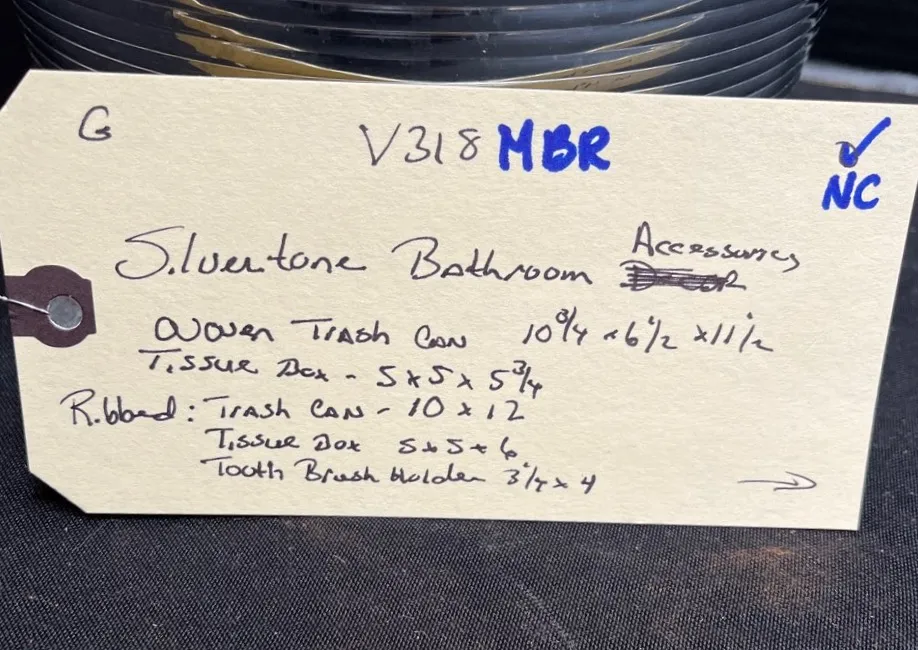 G V318 MBR ✓
NC
Silvertone Bathroom Accessories
Woven Trash Can 10 3/4 x 6 1/2 x 11 1/2
Tissue Box - 5 x 5 x 5 3/4
Ribbed: Trash Can - 10 x 12
Tissue Box 5 x 5 x 6
Tooth Brush Holder 3 1/4 x 4
→